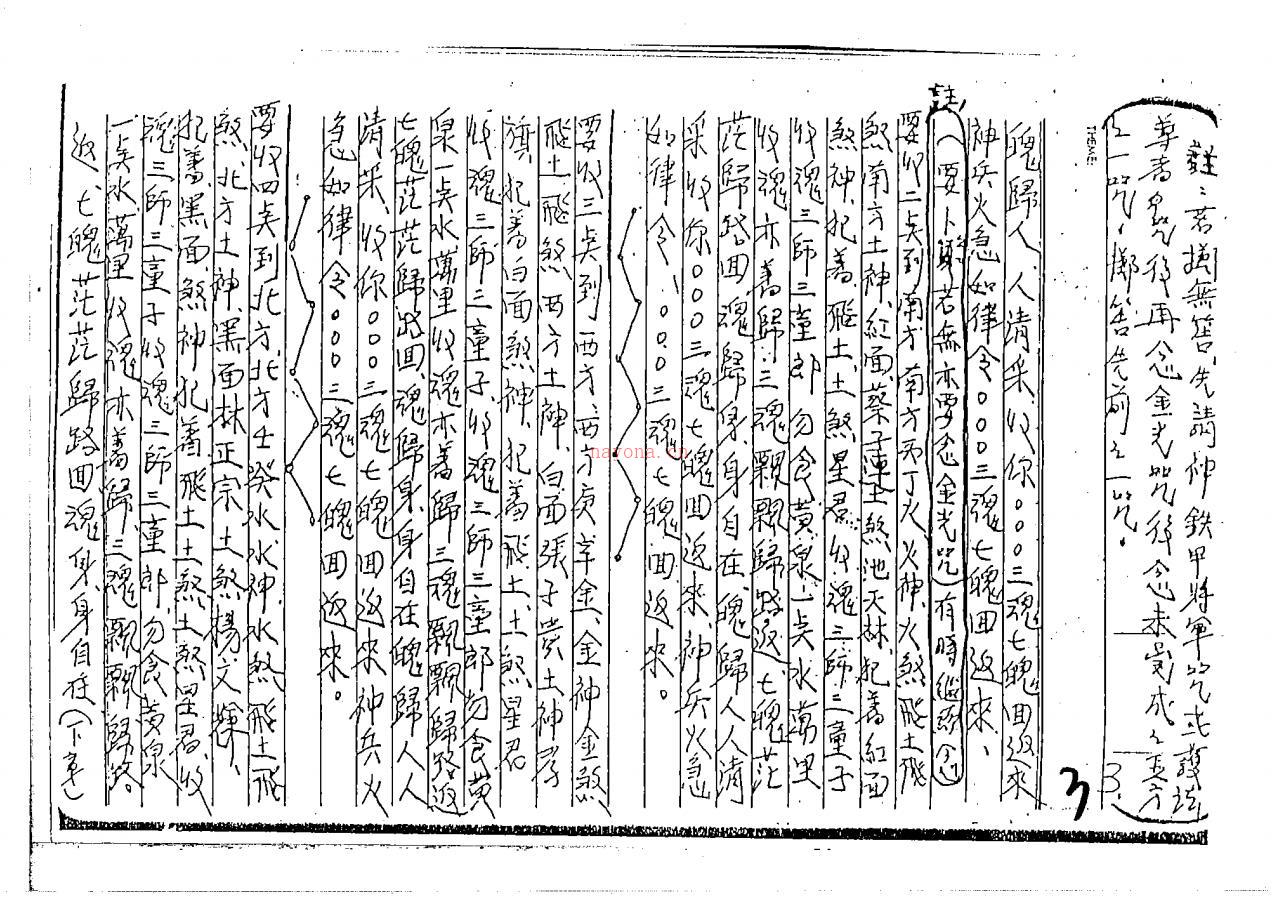 註：若擲無筶，先請神鉄甲将軍咒或護法
尊者咒後再念金光咒後念未完成之五方
之一咒，擲筶先前之一咒。
3.
3
TIEME
魄歸人，人清采，收你〇〇〇三魂七魄回返來
神兵火急如律令〇〇〇三魂七魄回返來、
註
（要卜筶若無亦要念金光咒）有時繼續念
要收二点到南方，南方丙丁火，火神火煞飛土飛
煞，南方土神，紅面蔡子 土煞池天林，犯著紅面
煞神，犯著飛土，土煞星君，收魂三師三童子
收魂三師三童郎，勿食黃泉一点水，萬里
收魂亦着歸，三魂飄飄歸路返，七魄茫
茫歸路回，魂歸身，身自在，魄歸人人清
采，收你〇〇〇三魂七魄回返來，神兵火急
如律令，〇〇〇三魂七魄回返來。
要收三点到西方，西方庚辛金，金神金煞
飛土飛煞，西方土神，白面張子 土神李
旗，犯着白面煞神，犯着飛土，土煞星君
收魂三師三童子，收魂三師三童郎勿食黃
泉一点水，萬里收魂亦着歸三魂飄飄歸路返
七魄茫茫歸路回，魂歸身，身自在魄歸人人
清采，收你〇〇〇三魂七魄回返來神兵火
急如律令〇〇〇三魂七魄回返來。
要收四点到北方，北方壬癸水，水神水煞飛土飛
煞，北方土神，黑面林正宗土煞楊文輝，
犯著黑面煞神犯着飛土土煞土煞星君，收
魂三師三童子收魂三師三童郎，勿食黃泉
一点水萬里收魂亦着歸，三魂飄飄歸路。
返，七魄茫茫歸路回魂身，身自在（下意）
navona.cn